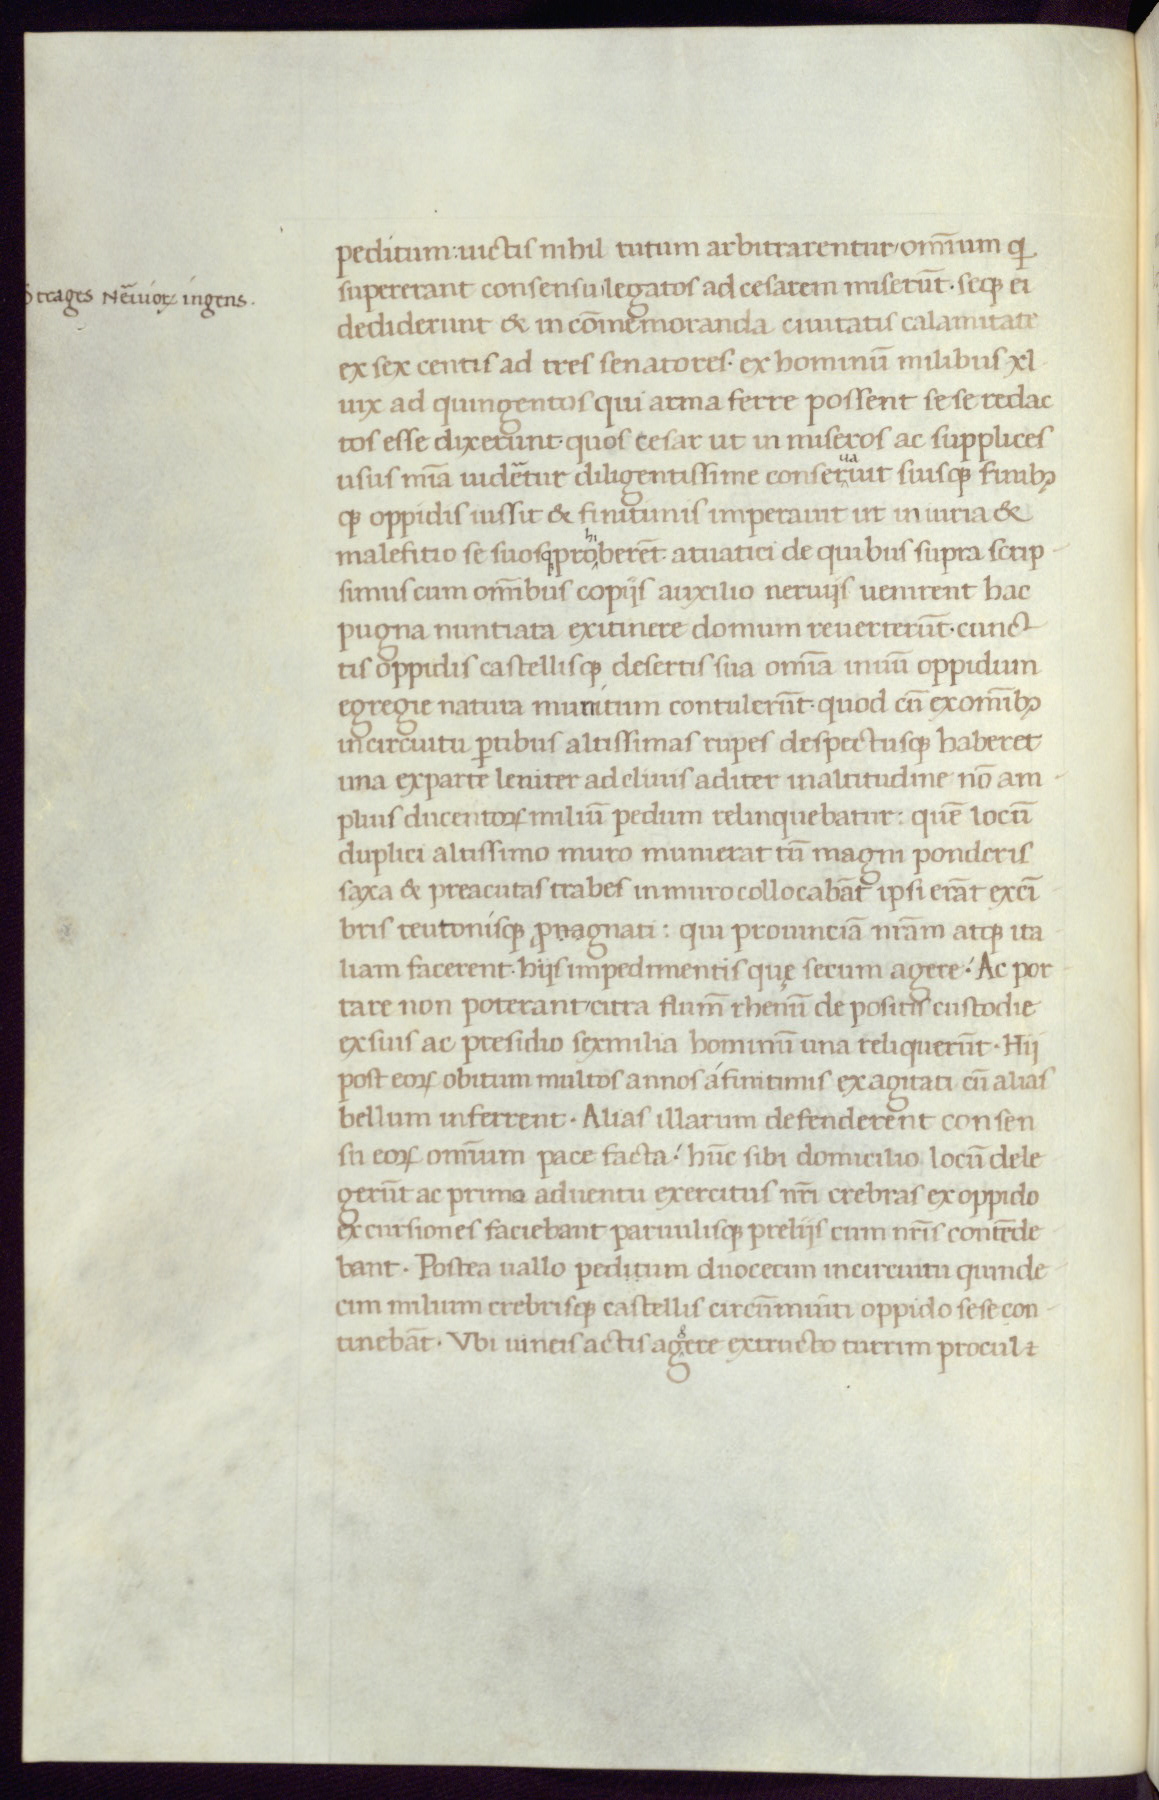 Strages Nēruioꝝ ingens.
peditum: uictis nihil tutum arbitrarentur, om̄ium qi
supererant consensu legatos ad cesarem miserūt. seqꝫ ei
dediderunt & in cōmemoranda ciuitatis calamitate
ex sex centis ad tres senatores. ex hominū milibus xl
uix ad quingentos qui arma ferre possent se se redac
tos esse dixerunt. quos cesar ut in miseros ac supplices
usus mīa uidēretur diligentissime conseruauit suisqꝫ finibꝫ
qꝫ oppidis iussit & finitimis imperauit ut iniuria &
malefitio se suosqꝫ prohiberēt. atuatici de quibus supra scrip-
simus cum om̄ibus copijs auxilio neruijs uenirent hac
pugna nuntiata exitinere domum reuerterūt. cunct
tis oppidis castellisqꝫ desertis sua om̄ia inuū oppidum
egregie natura munitum contulerūt. quod cū exom̄ibꝫ
incircuitu ꝑtibus altissimas rupes despectusqꝫ haberet
una exparte leniter ad cliuis aditer inaltitudine nō am-
plius ducentoꝝ miliū pedum relinquebatur: quē locū
duplici altissimo muro munierat tū magni ponderis
saxa & preacutas trabes inmuro collocabāt ipsi erāt excī
bris teutonisqꝫ ꝓnagnati: qui prouinciā nr̄am atqꝫ ita
liam facerent. hijs impedimentis quę secum agere: Ac por
tare non poterant, citra flum̄ rhenū de positis custodie
exsuis ac presidio sexmilia hominū una reliquerūt. Hij
post eoꝝ obitum multos annos áfinitimis exagitati cū alias
bellum inferrent. Alias illarum defenderent consen
su eoꝝ om̄ium pace facta: hūc sibi domicilio locū dele
gerūt ac primo aduentu exercitus nr̄i crebras ex oppido
excursiones faciebant paruulisqꝫ prelijs cum nr̄is contēde
bant. Postea uallo peditum duocecim incircuitu quinde-
cim milium crebrisqꝫ castellis circūmuniti oppido sese con-
tinebāt. Vbi uineis actis aggere extructo turrim procul &